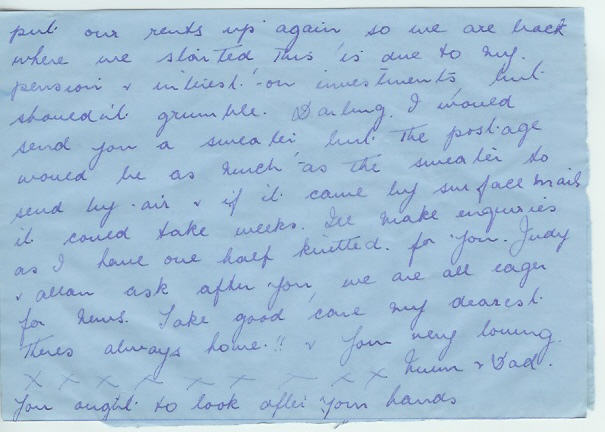 put our rents up again so we are back
where we started this is due to my
pension & interest on investments but
shouldn't grumble. Darling, I would
send you a sweater but the postage
would be as much as the sweater to
send by air & if it came by surface mail
it could take weeks. Ill make enquiries
as I have one half knitted for you. Judy
& allan ask after you, we are all eager
for news. Take good care my dearest
Theres always home!! & Your very loving
x x x x x x x x x Mum & Dad.
You ought to look after your hands